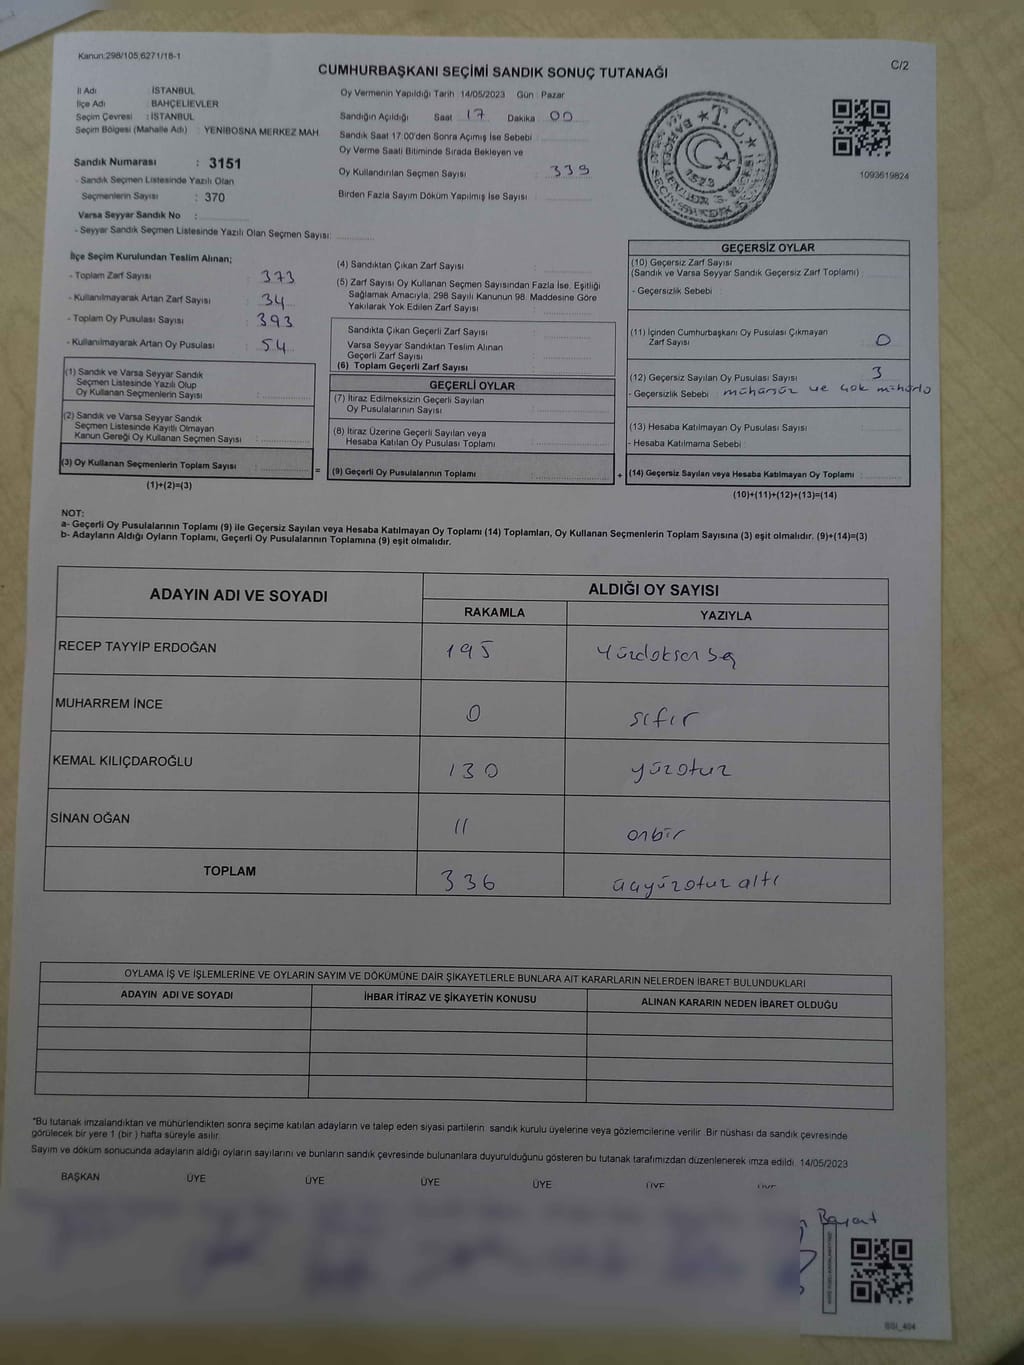 Kanun:298/105,6271/18-1
C/2
CUMHURBAŞKANI SEÇİMİ SANDIK SONUÇ TUTANAĞI
İl Adı : İSTANBUL
İlçe Adı : BAHÇELİEVLER
Seçim Çevresi : İSTANBUL
Seçim Bölgesi (Mahalle Adı) : YENİBOSNA MERKEZ MAH.
Sandık Numarası : 3151
- Sandık Seçmen Listesinde Yazılı Olan
Seçmenlerin Sayısı : 370
Varsa Seyyar Sandık No :
- Seyyar Sandık Seçmen Listesinde Yazılı Olan Seçmen Sayısı:
Oy Vermenin Yapıldığı Tarih : 14/05/2023 Gün : Pazar
Sandığın Açıldığı Saat : 17 Dakika : 00
Sandık Saat 17:00'den Sonra Açımış İse Sebebi :
Oy Verme Saati Bitiminde Sırada Bekleyen ve
Oy Kullandırılan Seçmen Sayısı : 339
Birden Fazla Sayım Döküm Yapılmış İse Sayısı :
T.C.
1093619824
İlçe Seçim Kurulundan Teslim Alınan;
- Toplam Zarf Sayısı : 373
- Kullanılmayarak Artan Zarf Sayısı : 34
- Toplam Oy Pusulası Sayısı : 393
- Kullanılmayarak Artan Oy Pusulası : 54
(1) Sandık ve Varsa Seyyar Sandık
Seçmen Listesinde Yazılı Olup
Oy Kullanan Seçmenlerin Sayısı :
(2) Sandık ve Varsa Seyyar Sandık
Seçmen Listesinde Kayıtlı Olmayan
Kanun Gereği Oy Kullanan Seçmen Sayısı :
(3) Oy Kullanan Seçmenlerin Toplam Sayısı :
(1)+(2)=(3)
=
(4) Sandıktan Çıkan Zarf Sayısı :
(5) Zarf Sayısı Oy Kullanan Seçmen Sayısından Fazla İse, Eşitliği
Sağlamak Amacıyla, 298 Sayılı Kanunun 98. Maddesine Göre
Yakılarak Yok Edilen Zarf Sayısı :
Sandıkta Çıkan Geçerli Zarf Sayısı :
Varsa Seyyar Sandıktan Teslim Alınan
Geçerli Zarf Sayısı :
(6) Toplam Geçerli Zarf Sayısı :
GEÇERLİ OYLAR
(7) İtiraz Edilmeksizin Geçerli Sayılan
Oy Pusulalarının Sayısı :
(8) İtiraz Üzerine Geçerli Sayılan veya
Hesaba Katılan Oy Pusulası Toplamı :
(9) Geçerli Oy Pusulalarının Toplamı :
+
GEÇERSİZ OYLAR
(10) Geçersiz Zarf Sayısı
(Sandık ve Varsa Seyyar Sandık Geçersiz Zarf Toplamı) :
- Geçersizlik Sebebi :
(11) İçinden Cumhurbaşkanı Oy Pusulası Çıkmayan
Zarf Sayısı : 0
(12) Geçersiz Sayılan Oy Pusulası Sayısı : 3
- Geçersizlik Sebebi : mühürsüz ve çok mühürlü
(13) Hesaba Katılmayan Oy Pusulası Sayısı :
- Hesaba Katılmama Sebebi :
(14) Geçersiz Sayılan veya Hesaba Katılmayan Oy Toplamı :
(10)+(11)+(12)+(13)=(14)
NOT:
a- Geçerli Oy Pusulalarının Toplamı (9) ile Geçersiz Sayılan veya Hesaba Katılmayan Oy Toplamı (14) Toplamları, Oy Kullanan Seçmenlerin Toplam Sayısına (3) eşit olmalıdır. (9)+(14)=(3)
b- Adayların Aldığı Oyların Toplamı, Geçerli Oy Pusulalarının Toplamına (9) eşit olmalıdır.
ADAYIN ADI VE SOYADI
ALDIĞI OY SAYISI
RAKAMLA YAZIYLA
RECEP TAYYİP ERDOĞAN 195 Yüzdoksan beş
MUHARREM İNCE 0 sıfır
KEMAL KILIÇDAROĞLU 130 yüzotuz
SİNAN OĞAN 11 onbir
TOPLAM 336 üçyüzotuz altı
OYLAMA İŞ VE İŞLEMLERİNE VE OYLARIN SAYIM VE DÖKÜMÜNE DAİR ŞİKAYETLERLE BUNLARA AİT KARARLARIN NELERDEN İBARET BULUNDUKLARI
ADAYIN ADI VE SOYADI İHBAR İTİRAZ VE ŞİKAYETİN KONUSU ALINAN KARARIN NEDEN İBARET OLDUĞU
*Bu tutanak imzalandıktan ve mühürlendikten sonra seçime katılan adayların ve talep eden siyasi partilerin sandık kurulu üyelerine veya gözlemcilerine verilir. Bir nüshası da sandık çevresinde
görülecek bir yere 1 (bir ) hafta süreyle asılır.
Sayım ve döküm sonucunda adayların aldığı oyların sayılarını ve bunların sandık çevresinde bulunanlara duyurulduğunu gösteren bu tutanak tarafımızdan düzenlenerek imza edildi. 14/05/2023
BAŞKAN ÜYE ÜYE ÜYE ÜYE ÜYE ÜYE